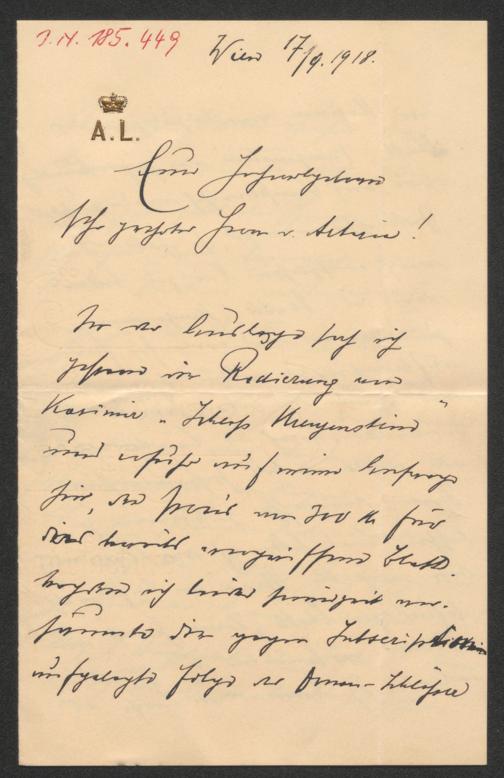 J.N. 185.449
Wien 17/9. 1918.
A. L.
Euer Hochwohlgeboren
Sehr geehrter Herr v. Artaria!
In der Auslage sah ich
gestern die Radierung von
Kasimir „Schloß Aggstein"
und erfuhr auf meine Anfrage
hier, den Preis von 300 K für
dies bereits vergriffene Blatt.
ich leider seinerzeit ver-
säumte die gegen Subscription
aufgelegte Folge der Donau-Schlösser